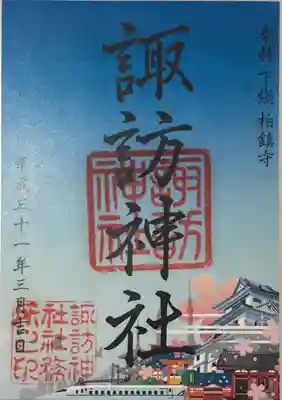 奉拝 下総 柏鎮守
諏訪神社
諏訪神社
平成三十一年三月吉日
諏訪神
社社務
所之印